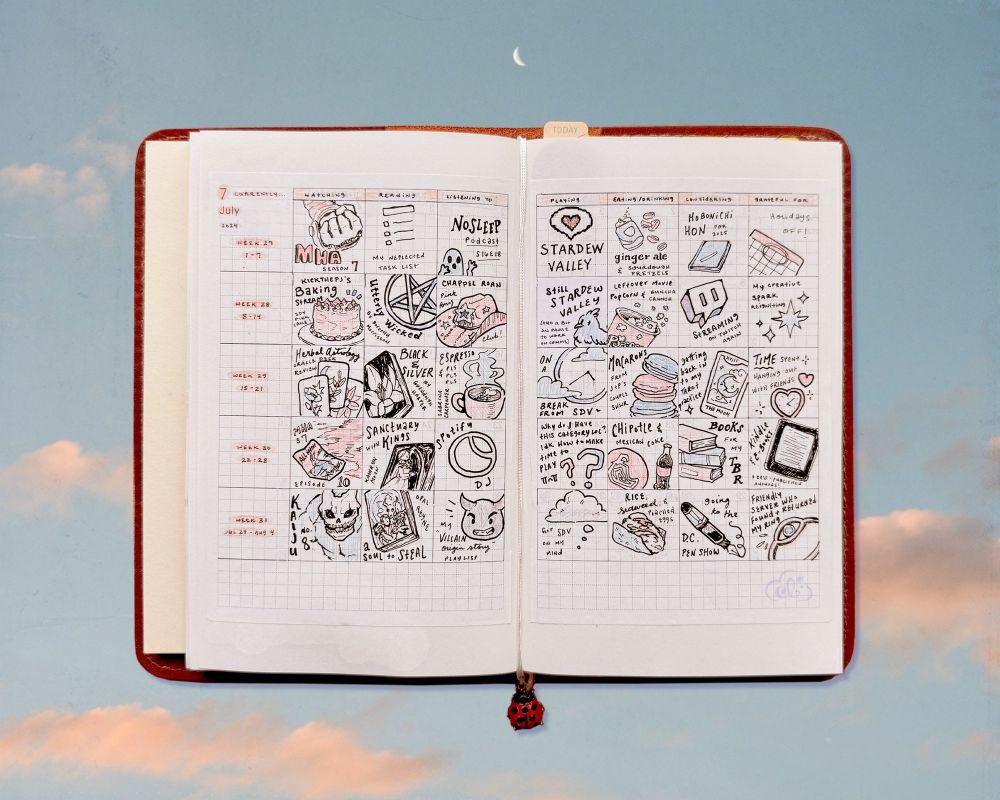 TODAY
7 CURRENTLY...
July
2024
WATCHING
READING
LISTENING TO
PLAYING
EATING/DRINKING
CONSIDERING
GRATEFUL FOR
WEEK 27
1-7
MHA
SEASON 7
MY NEGLECTED
TASK LIST
NOSLEEP
Podcast
STARDEW
VALLEY
ginger ale
& SOURDOUGH
PRETZELS
HOBONICHI
HON FOR
2025
Holidays
OFF!
WEEK 28
8-14
KICKTHEPJ'S
Baking
STREAM
Utterly Wicked
CHAPPEL ROAN
Pink
Pony
Club!
Still
STARDEW
VALLEY
Leftover Movie
Popcorn &
SCREAMING
ON TWITCH
AGAIN
My creative
SPARK
reigniting
WEEK 29
15-21
Herbal Astrology
ORACLE DECK
REVIEW
BLACK
&
SILVER
ESPRESSO
SABRINA
CARPENTER
ON
A
BREAK
FROM SDV
MACARONS
FROM
getting
back in
to my
TAROT
practice
THE MOON
TIME SPENT
HANGING OUT
WITH FRIENDS
WEEK 30
22-28
MHA
S7
EPISODE 10
SANCTUARY
KINGS
SPOTIFY
DJ
Why do I HAVE
THIS CATEGORY LOL?
idk HOW to MAKE
TIME to
PLAY
CHIPOTLE &
MEXICAN COKE
BOOKS
FOR
MY
TBR
Kindle
WEEK 31
JUL 29 - AUG 4
KAIJU
No.
8
OPAL
REYNE
a
SOUL to STEAL
my
VILLAIN
origin story
PLAYLIST
SDV
ON MY
MIND
RICE,
seaweed, &
EGGS
going
to the
D.C.
PEN SHOW
FRIENDLY
SERVER WHO
FOUND & RETURNED
MY RING